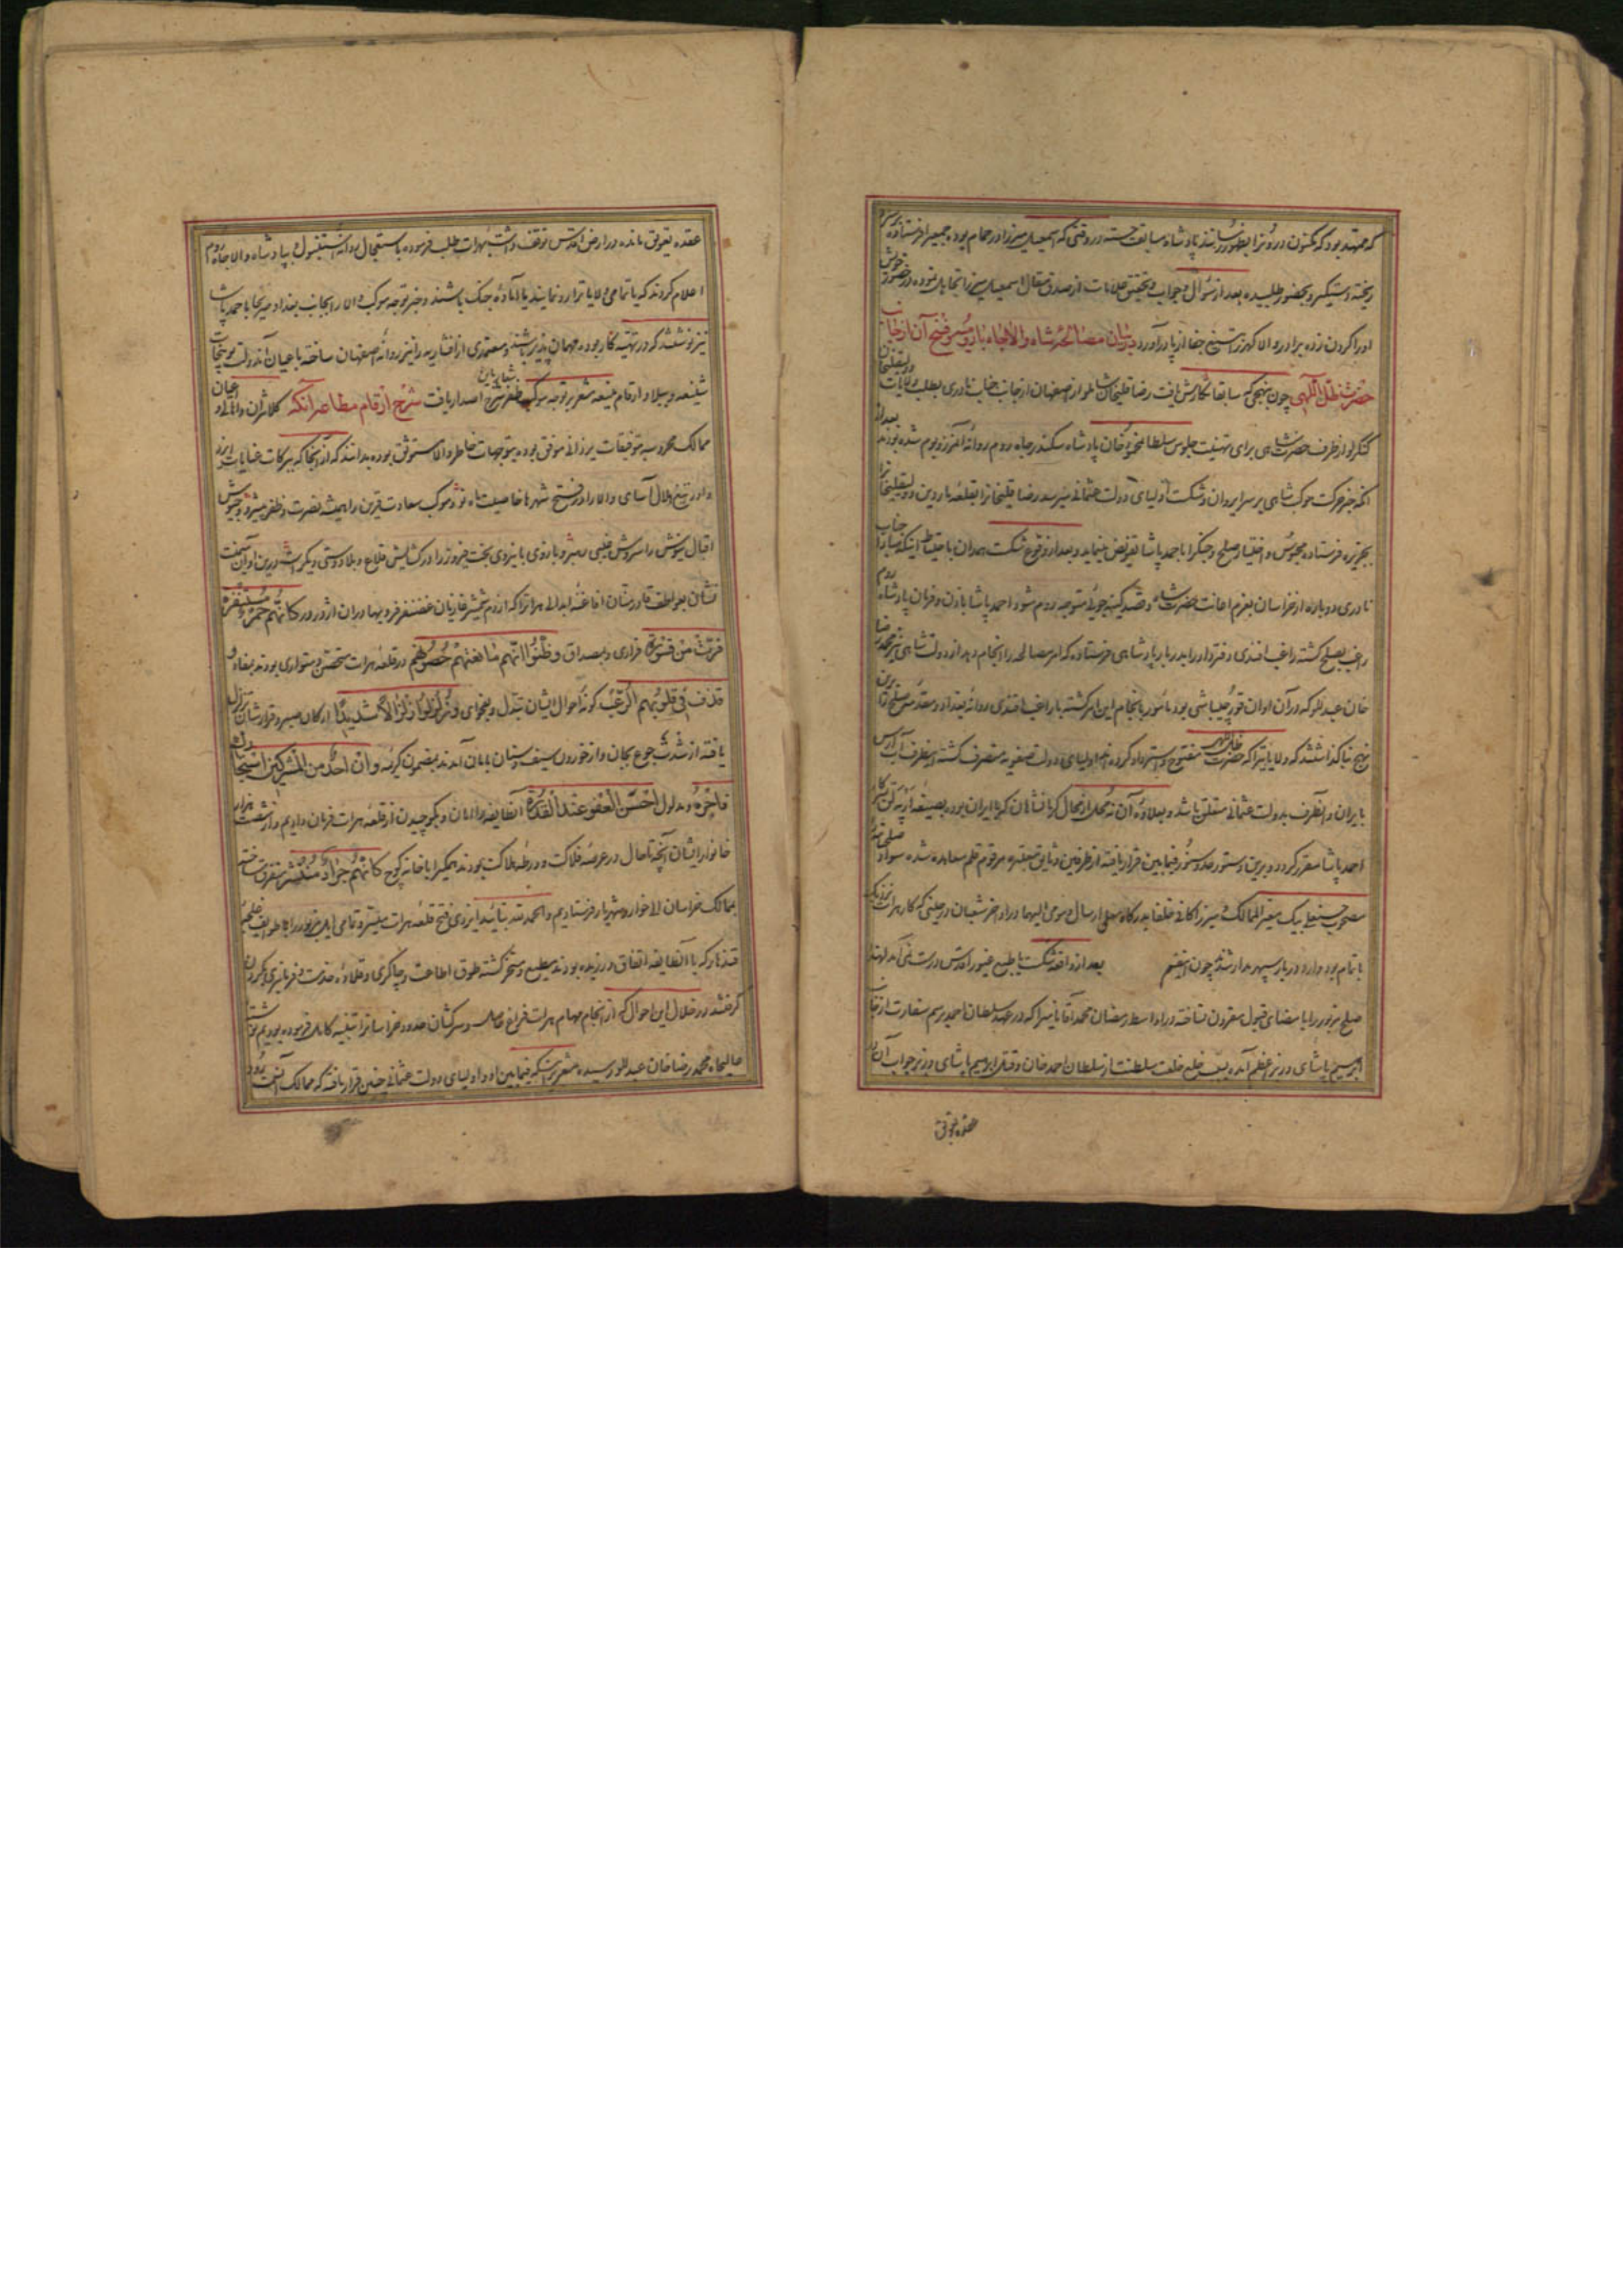 که ممهد بود که مکنون درونرا بظهور رسانند پادشاه سابقت جسته در وقتی که اسمعیل میرزا در حمام بود جمعی را فرستاده سر و
ریخته دستگیر و بحضور طلبیده بعد از سؤال و جواب و تحقیق علامات از صدق مقال اسمعیل میرزا تجاهل نموده در حضور خویش
او را گردن زده برادر والا گهر را بتیغ جفا از پا درآورد در بیان مصالحه شاه والاجاه با روم و فسخ آن از جانب
حضرت ظل اللهی چون بنهجی که سابقا نگارش یافت رضا قلیخان شاملو از اصفهان از جانب جناب نادری بطلب ولایات و ولیقلیخان
کنگرلو از طرف حضرت شاهی برای تهنیت جلوس سلطان محمود خان پادشاه سکندر جاه روم روانه آن مرز و بوم شده بودند بعد از
آنکه خبر حرکت موکب شاهی بر سر ایروان و شکست اولیای دولت عثمانی میرسد رضا قلیخانرا بقلعه ماردین و ولیقلیخانرا
بجزیره فرستاده محبوس و اختیار صلح و جنگ را با احمد پاشا تفویض مینماید و بعد از وقوع شکست همدان باحتیاط اینکه مبادا جناب
نادری دوباره از خراسان بعزم اعانت حضرت شاه و قصد کینه جوئی متوجه روم شود احمد پاشا باذن و فرمان پادشاه روم
راغب بصلح گشته راغب افندی دفتردار را بدربار پادشاهی فرستاده که امر مصالحه را انجام دهد از دولت شاهی نیز محمد رضا
خان عبدللو که در آن اوان قورچیباشی بود مأمور بانجام این امر گشته با راغب افندی روانه بغداد و مقدمه صلح را برین
نهج بنا گذاشتند که ولایاتیرا که حضرت ظل اللهی مفتوح و استرداد کرده اند اولیای دولت صفویه متصرف گشته اینطرف آب ارس
بایران و آنطرف بدولت عثمانی متعلق باشد و بعلاوه آن نه محل از محال کرمانشاهان که با ایران بود بصیغه آرپه لق بکار
احمد پاشا مقرر گردد و برین دستور حدود و سنور فیمابین قرار یافته از طرفین وثایق معتبره مرقوم قلم معاهده شده سواد صلحنامه
مصحوب حسنعلی بیک معیر الممالک و میرزا کافی خلفا بدرگاه معلی ارسال و موی الیهما در اواخر شعبان در حینی که کار هرات نزدیک
باتمام بود وارد دربار سپهر مدار شدند چون اینقسم بعد از واقعه شکست با طبع غیور اقدس درست نمی آمد لهذا
صلح مزبور را بامضای قبول مقرون نساخته در اواسط رمضان محمد آقا نامی را که در عهد سلطان احمد برسم سفارت از جانب
ابرهیم پاشای وزیر اعظم آمده بسبب خلع خلعت سلطنت از سلطان احمد خان و قتل ابراهیم پاشای وزیر جواب آن در
عقده تعویق
عقده تعویق مانده در ارض اقدس توقف داشت بهرات طلب فرموده باستعجال روانه استنبول و بپادشاه والاجاه روم
اعلام کردند که یا تمامی ولایاترا رد نمایند یا آماده جنگ باشند و خبر توجه موکب والا را بجانب بغداد صریحا باحمد پاشا
نیز نوشتند که در تهیه کار بوده مهمان پذیر باشند و معتمدی از افشاریه را نیز روانه اصفهان ساخته باعیان آندولت توبیخات
شنیعه و ببلاد ارقام منیعه مشعر بر توجه موکب ظفر شعار باین شرح اصدار یافت شرح ارقام مطاعه آنکه کلانتران و اهالی و اعیان
ممالک محروسه بتوفیقات یزدانی موفق بوده بتوجهات خاطر والا مستوثق بوده بدانند که از آنجا که ببرکات عنایات ایزد
داور تیغ هلال آسای والا را در فتح شهرها خاصیت ماه نو و موکب سعادت قرین را همیشه نصرت و ظفر پیشرو و جیوش
اقبال نیوش را سروش غیبی رهبر و بازوی با نیروی بخت فیروز را در گشایش قلاع و بلاد دستی دیگرست درین اوان میمنت
نشان بعواطف قادر منان افاغنه ابدالی هرات را که از دم شمشیر غازیان غضنفر فر و بهادران اژدر در کانهم حمر مستنفرة
فرت من قسورة فراری و بمصداق و ظنوا انهم مانعتهم حصونهم در قلعه هرات متحصن و متواری بودند بمفاد و
قذف فی قلوبهم الرعب گونه احوال ایشان تبدل و بفحوای و زلزلوا زلزالا شدیدا ارکان صبر و قرارشان تزلزل
یافته از شدت جوع بجان و از خوردن سیف و سنان بامان آمدند بمضمون کریمه و ان احد من المشرکین استجارک
فاجره و مدلول احسن العفو عند القدرة آنطایفه را امان و بکوچیدن از قلعه هرات فرمان دادیم و از شصت هزار
خانوار ایشان آنچه تا حال در عرصه فلاکت و ورطه هلاکت بودند همگی را با خانه کوچ کانهم جراد منتشر متفرق ساخته
بممالک خراسان الا خوار و شهریار فرستادیم و الحمد لله بتائید ایزدی فتح قلعه هرات میسر و تمامی ایل مزبور را با طوایف غلیجه
قندهار که با آنطایفه اتفاق ورزیده بودند مطیع و مسخر گشته طوق اطاعت و چاکری و قلاده خدمت و فرمانبری بگردن
گرفتند در خلال این احوال که از انجام مهام هرات فراغ حاصل و سرکشان حدود خراسانرا تنبیه کامل فرموده بودیم نوشته
عالیجاه محمد رضا خان عبدللو رسیده مشعر بر اینکه فیمابین او و اولیای دولت عثمانی چنین قرار یافته که ممالک آنسمت رود